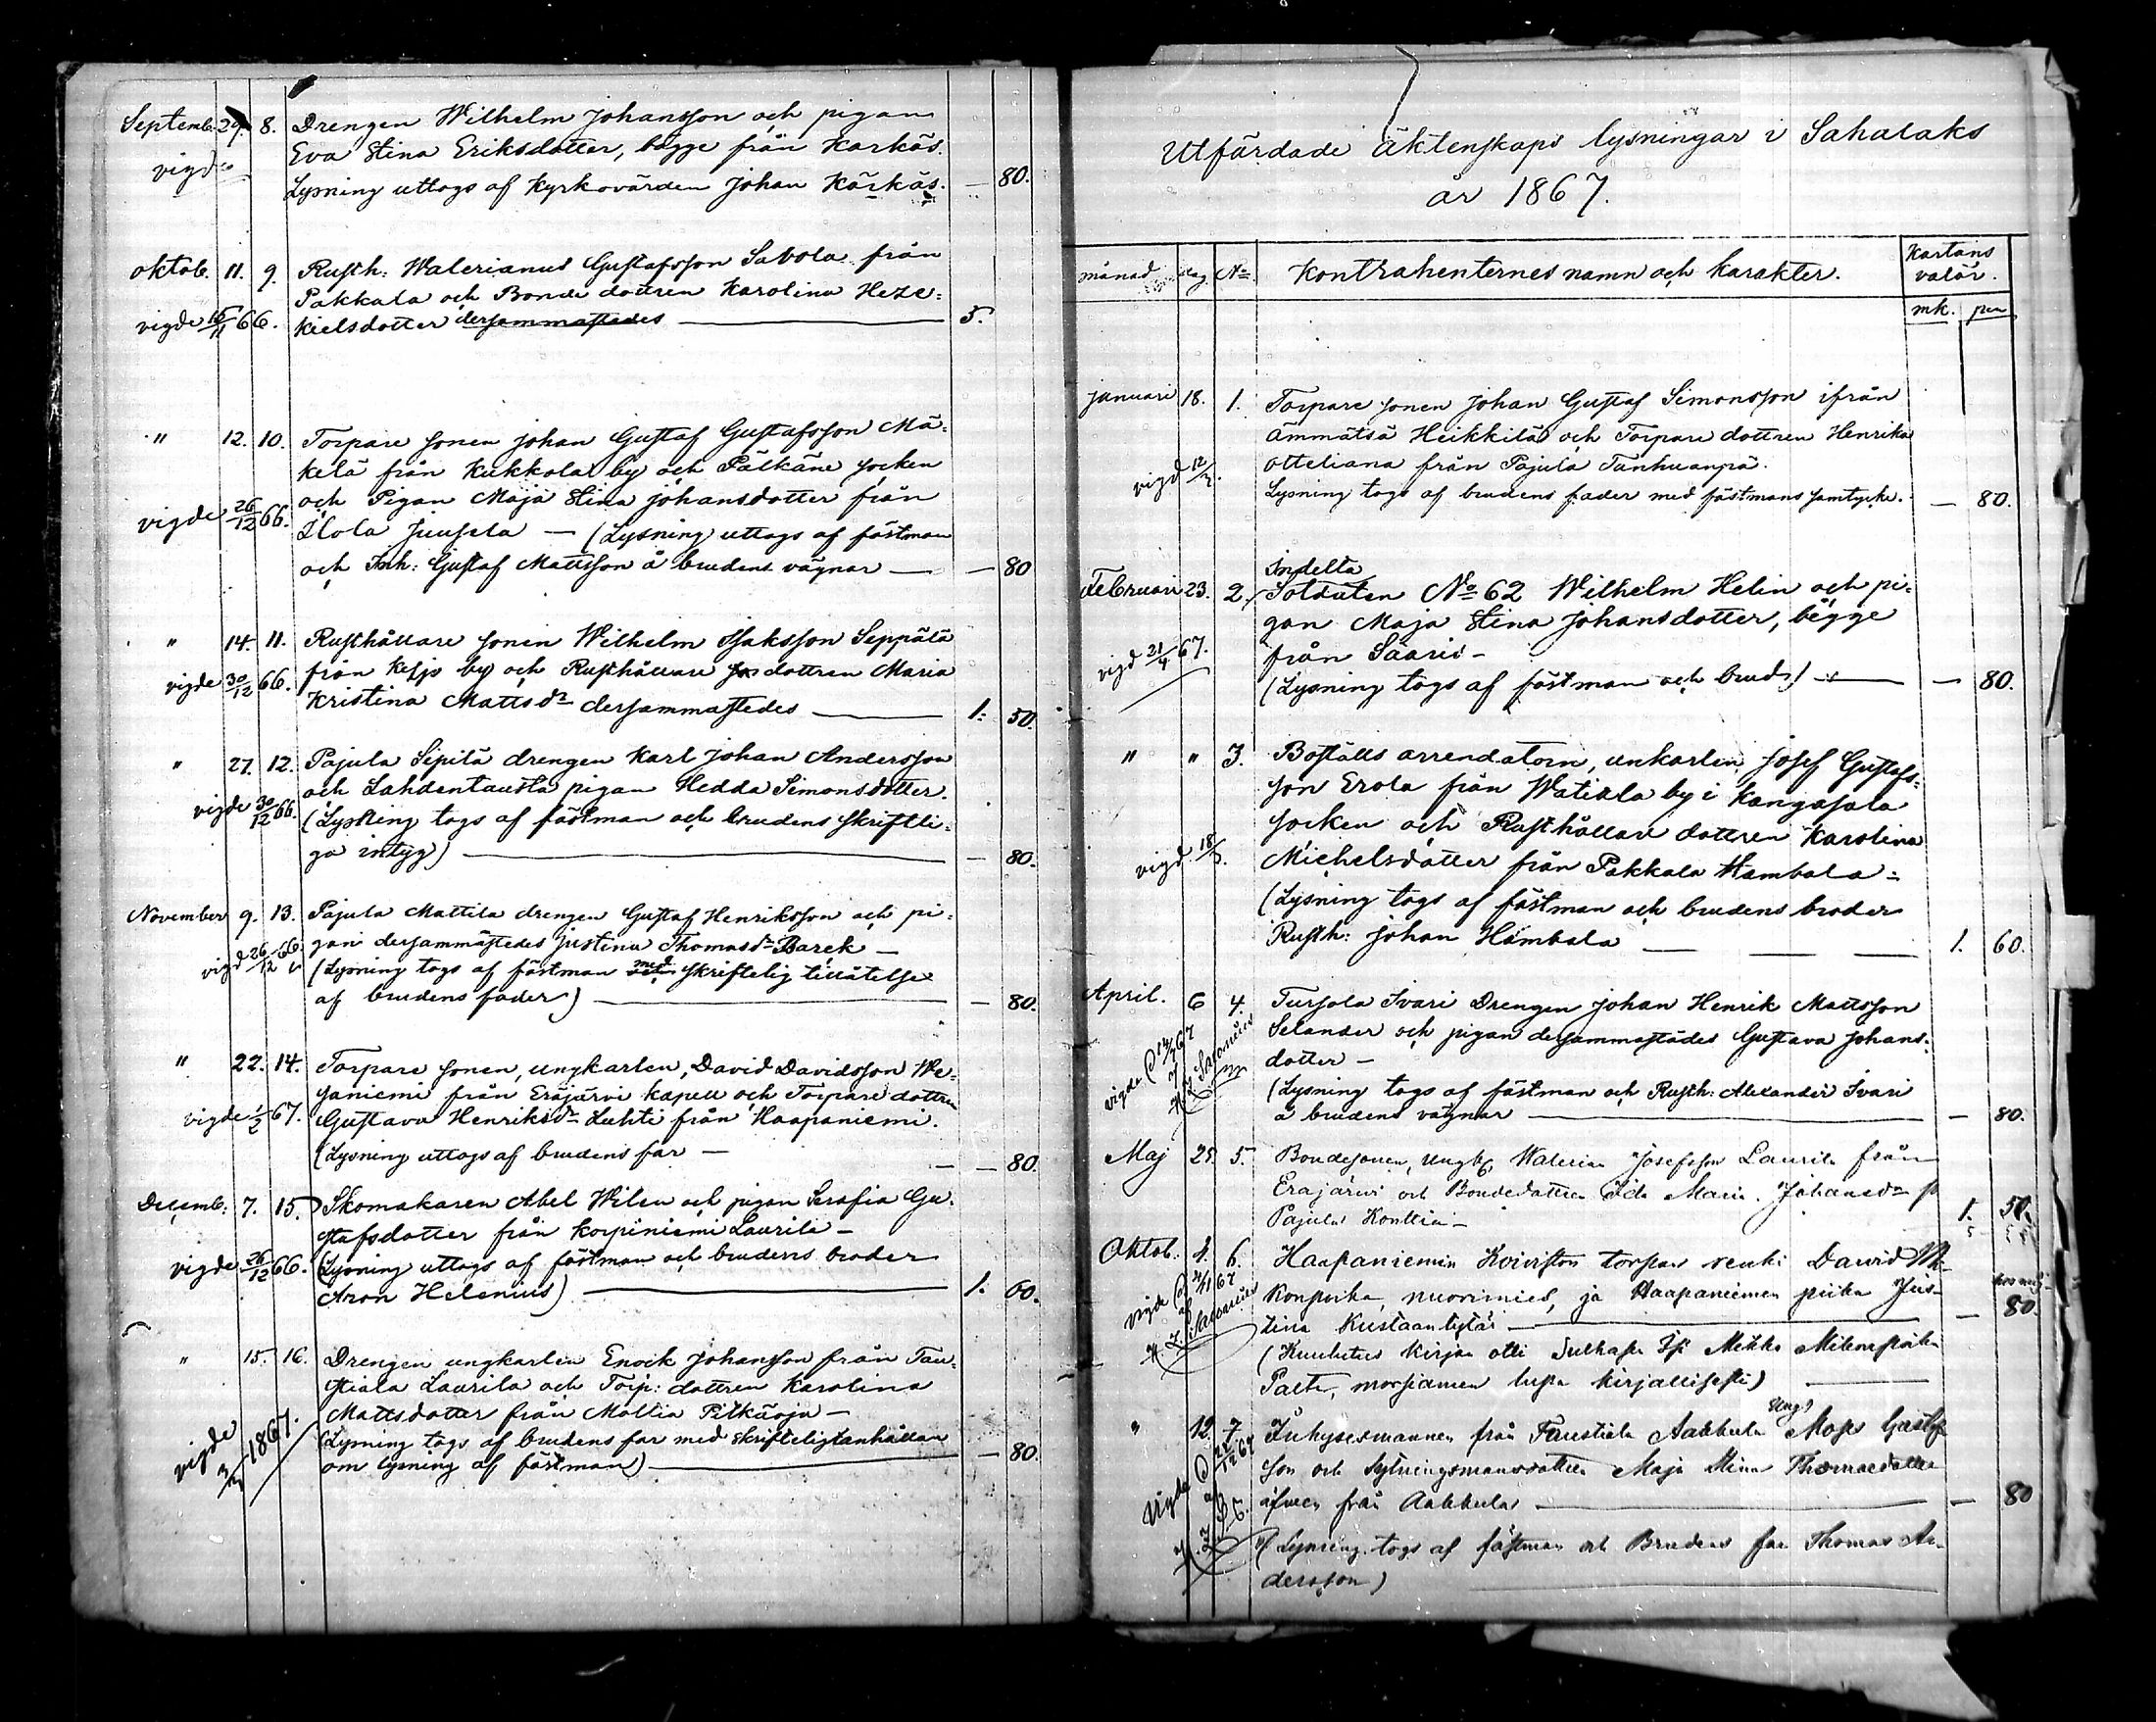 Septemb. 29. 8. Drengen Wilhelm Johansson och pigan
Eva Stina Eriksdotter, bägge från Karkäs.
vigde
Lysning uttogs af Kyrkovärden Johan Kärkäs. — 80.
Oktob. 11. 9. Rusth: Walerianus Gustafsson Savola från
Pakkala och Bonde dottren Karolina Heze-
vigde 15/11 66. kielsdotter dersammastädes — 5.
" 12. 10. Torpare sonen Johan Gustaf Gustafsson Mä-
kelä från Kukkola by och Pälkäne socken
och Pigan Maja Stina Johansdotter från
vigde 26/12 66. Ilola Juusela — (Lysning uttogs af fästman
och Inh: Gustaf Mattsson å brudens vägnar — — 80
" 14. 11. Rusthållare sonen Wilhelm Isaksson Seppälä
vigde 30/12 66. från Kesjo by och Rusthållare dottren Maria
Kristina Mattsdr dersammastedes — 1. 50.
" 27. 12. Pajula Sipilä drengen Karl Johan Andersson
och Lahdentausta pigan Hedda Simonsdotter.
vigde 30/12 66. (Lysning togs af fästman och brudens skriftli-
ga intyg) — — 80.
November 9. 13. Pajula Mattila drengen Gustaf Henriksson och pi-
gan dersammastedes Justina Thomasdr Barck —
vigd 26/12 66. (Lysning togs af fästman med skriftelig tillåtelse
af brudens fader) — — 80.
" 22. 14. Torpare sonen, ungkarlen, David Davidsson We-
saniemi från Eräjärvi kapell och Torpare dottren
vigde 1/2 67. Gustava Henriksdr Luhti från Haapaniemi.
(Lysning uttogs af brudens far — — 80.
Decemb: 7. 15. Skomakaren Abel Wilen och pigan Serafia Gu-
stafsdotter från Korpiniemi Laurila —
vigde 26/12 66. (Lysning uttogs af fästman och brudens broder
Aron Helenius) — 1. 60.
" 15. 16. Drengen ungkarlen Enock Johansson från Tau-
stiala Laurila och Torp: dottren Karolina
Mattsdotter från Moltia Pitkäoja —
vigde 3/2 1867. (Lysning togs af brudens far med skrifteligt anhållan
om lysning af fästman) — — 80.
Utfärdade äktenskaps lysningar i Sahalaks
år 1867.
månad dag No Kontrahenternes namn och karakter. Kartans valör.
mk. pen
Januari 18. 1. Torpare sonen Johan Gustaf Simonsson ifrån
Ämmätsä Heikkilä och Torpare dottren Henrika
vigd 12/3. Otteliana från Pajula Tanhuanpä.
Lysning togs af brudens fader med fästmans samtycke. — 80.
Indelta
Februari 23. 2. Soldaten No 62 Wilhelm Helin och pi-
gan Maja Stina Johansdotter, bägge
vigd 21/4 67. från Saaris —
(Lysning togs af fästman och brud) — — 80.
" " 3. Boställs arrendatorn, unkarlen Josef Gustafs-
son Erola från Watiala by i Kangasala
socken och Rusthållare dottren Karolina
vigd 18/3. Michelsdotter från Pakkala Hambala —
(Lysning togs af fästman och brudens broder
Rusth: Johan Hambala — 1. 60.
April. 6 4. Tursola Ivari Drengen Johan Henrik Mattsson
Selander och pigan dersammastädes Gustava Johans-
vigde dotter —
(Lysning togs af fästman och Rusth: Alexander Ivari
å brudens vägnar — — 80.
Maj 25. 5. Bondesonen, ungk. Waleria Josefsson Laurila från
Eräjärvi och Bondedottren Ida Maria Johansdr
Pajula Konttia — 1. 50.
Oktob. 4. 6. Haapaniemin Koiviston torpan renki David
vigde konpoika, nuorimies, ja Haapaniemen piika Jus-
tina Kustaantytär — — 80.
(Kuulutus kirjan otti Sulhasen Mikko
morsiamen lupa kirjallisesti) —
Ungk
" 12. 7. Inhysesmannen från Taustiala Aakkula Moses Gustaf-
son och Sytningsmansdottren Maja Stina Thomasdotter
vigde äfven från Aakkula — — 80
(Lysning togs af fästman och Brudens far Thomas An-
dersson)